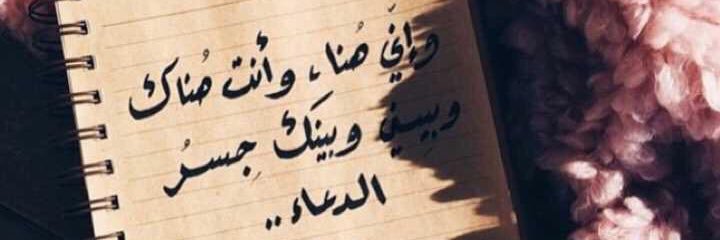 وإنّي هُنا، وأنت هُناك
وبيني وبينَك جِسرُ
الدعاء..